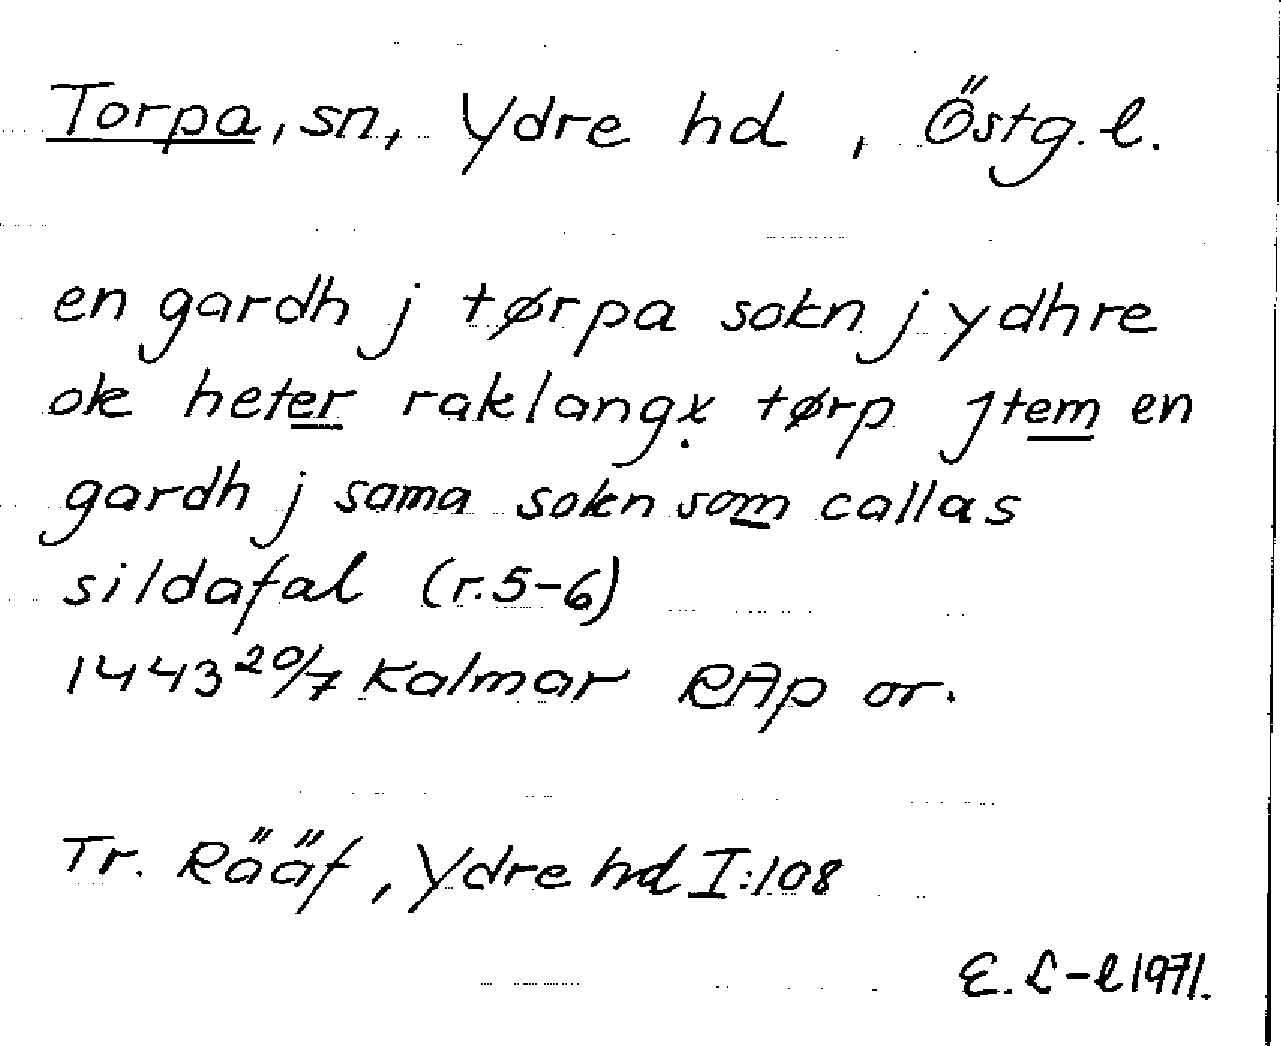 Torpa, sn, Ydre hd, Östg. l.
en gardh j tørpa sokn j ydhre
ok heter raklangx tørp Jtem en
gardh j sama sokn som callas
sildafal (r. 5-6)
1443 20/7 Kalmar RAp or.
Tr. Rääf, Ydre hd I:108
E. L-l 1971.